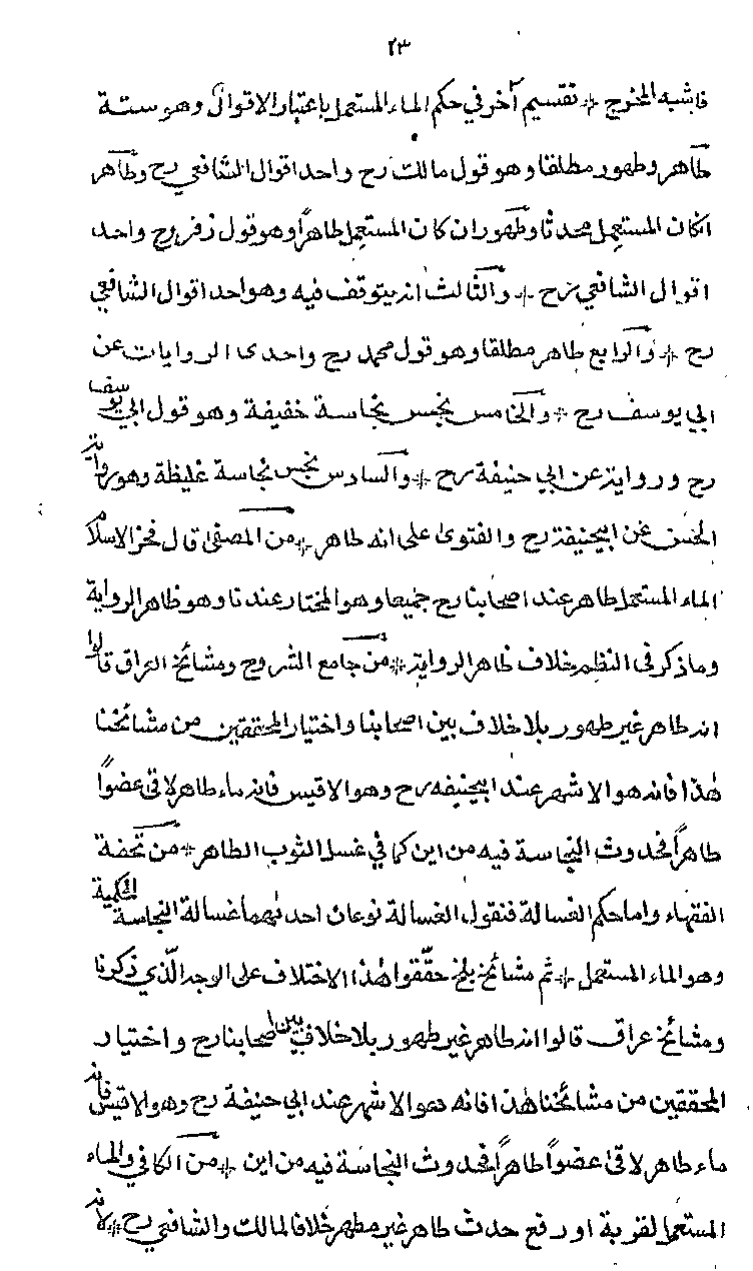 ٢٣
فاشبه المخرج * تقسيم آخر في حكم الماء المستعمل باعتبار الاقوال وهو ستة
طاهر وطهور مطلقا وهو قول مالك رح واحد اقوال الشافعي رح وطاهر
انكان المستعمل محدثا وطهور ان كان المستعمل طاهراً وهو قول زفر رح واحد
اقوال الشافعي رح * والثالث انه يتوقف فيه وهو احد اقوال الشافعي
رح * والرابع طاهر مطلقا وهو قول محمد رح واحدى الروايات عن
ابي يوسف رح * والخامس نجس نجاسة خفيفة وهو قول ابي يوسف
رح ورواية عن ابي حنيفة رح * والسادس نجس نجاسة غليظة وهو رواية
الحسن عن ابيحنيفة رح والفتوى على انه طاهر * من المصفى قال فخر الاسلام
الماء المستعمل طاهر عند اصحابنا رح جميعا وهو المختار عندنا وهو ظاهر الرواية
وما ذكر في النظم خلاف ظاهر الرواية * من جامع الشروح ومشائخ العراق قالوا
انه طاهر غير طهور بلا خلاف بين اصحابنا واختيار المحققين من مشائخنا
هذا فانه هو الاشهر عند ابيحنيفه رح وهو الاقيس فانه ماء طاهر لاقى عضواً
طاهراً فحدوث النجاسة فيه من اين كما في غسل الثوب الطاهر * من تحفة
الفقهاء واما حكم الغسالة فنقول الغسالة نوعان احدهما غسالة النجاسة الحكمية
وهو الماء المستعمل * ثم مشائخ بلخ حققوا هذا الاختلاف على الوجه الّذي ذكرنا
ومشائخ عراق قالوا انه طاهر غير طهور بلا خلاف بين اصحابنا رح واختيار
المحققين من مشائخنا هذا فانه هو الاشهر عند ابي حنيفة رح وهو الاقيس فانه
ماء طاهر لاقى عضواً طاهراً فحدوث النجاسة فيه من اين * من الكافي والماء
المستعمل لقربة او رفع حدث طاهر غير مطهر خلافا لمالك والشافعي رح * لانه